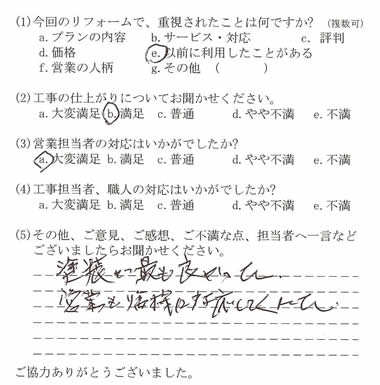 (1)今回のリフォームで、重視されたことは何ですか? (複数可)
a.プランの内容 b.サービス・対応 c. 評判
d.価格 e.以前に利用したことがある
f.営業の人柄 g.その他 ( )
(2)工事の仕上がりについてお聞かせください。
a.大変満足 b.満足 c.普通 d.やや不満 e.不満
(3)営業担当者の対応はいかがでしたか?
a.大変満足 b.満足 c.普通 d.やや不満 e.不満
(4)工事担当者、職人の対応はいかがでしたか?
a.大変満足 b.満足 c.普通 d.やや不満 e.不満
(5)その他、ご意見、ご感想、ご不満な点、担当者へ一言など
ございましたらお聞かせください。
塗装 最も良かった
営業も
ご協力ありがとうございました。